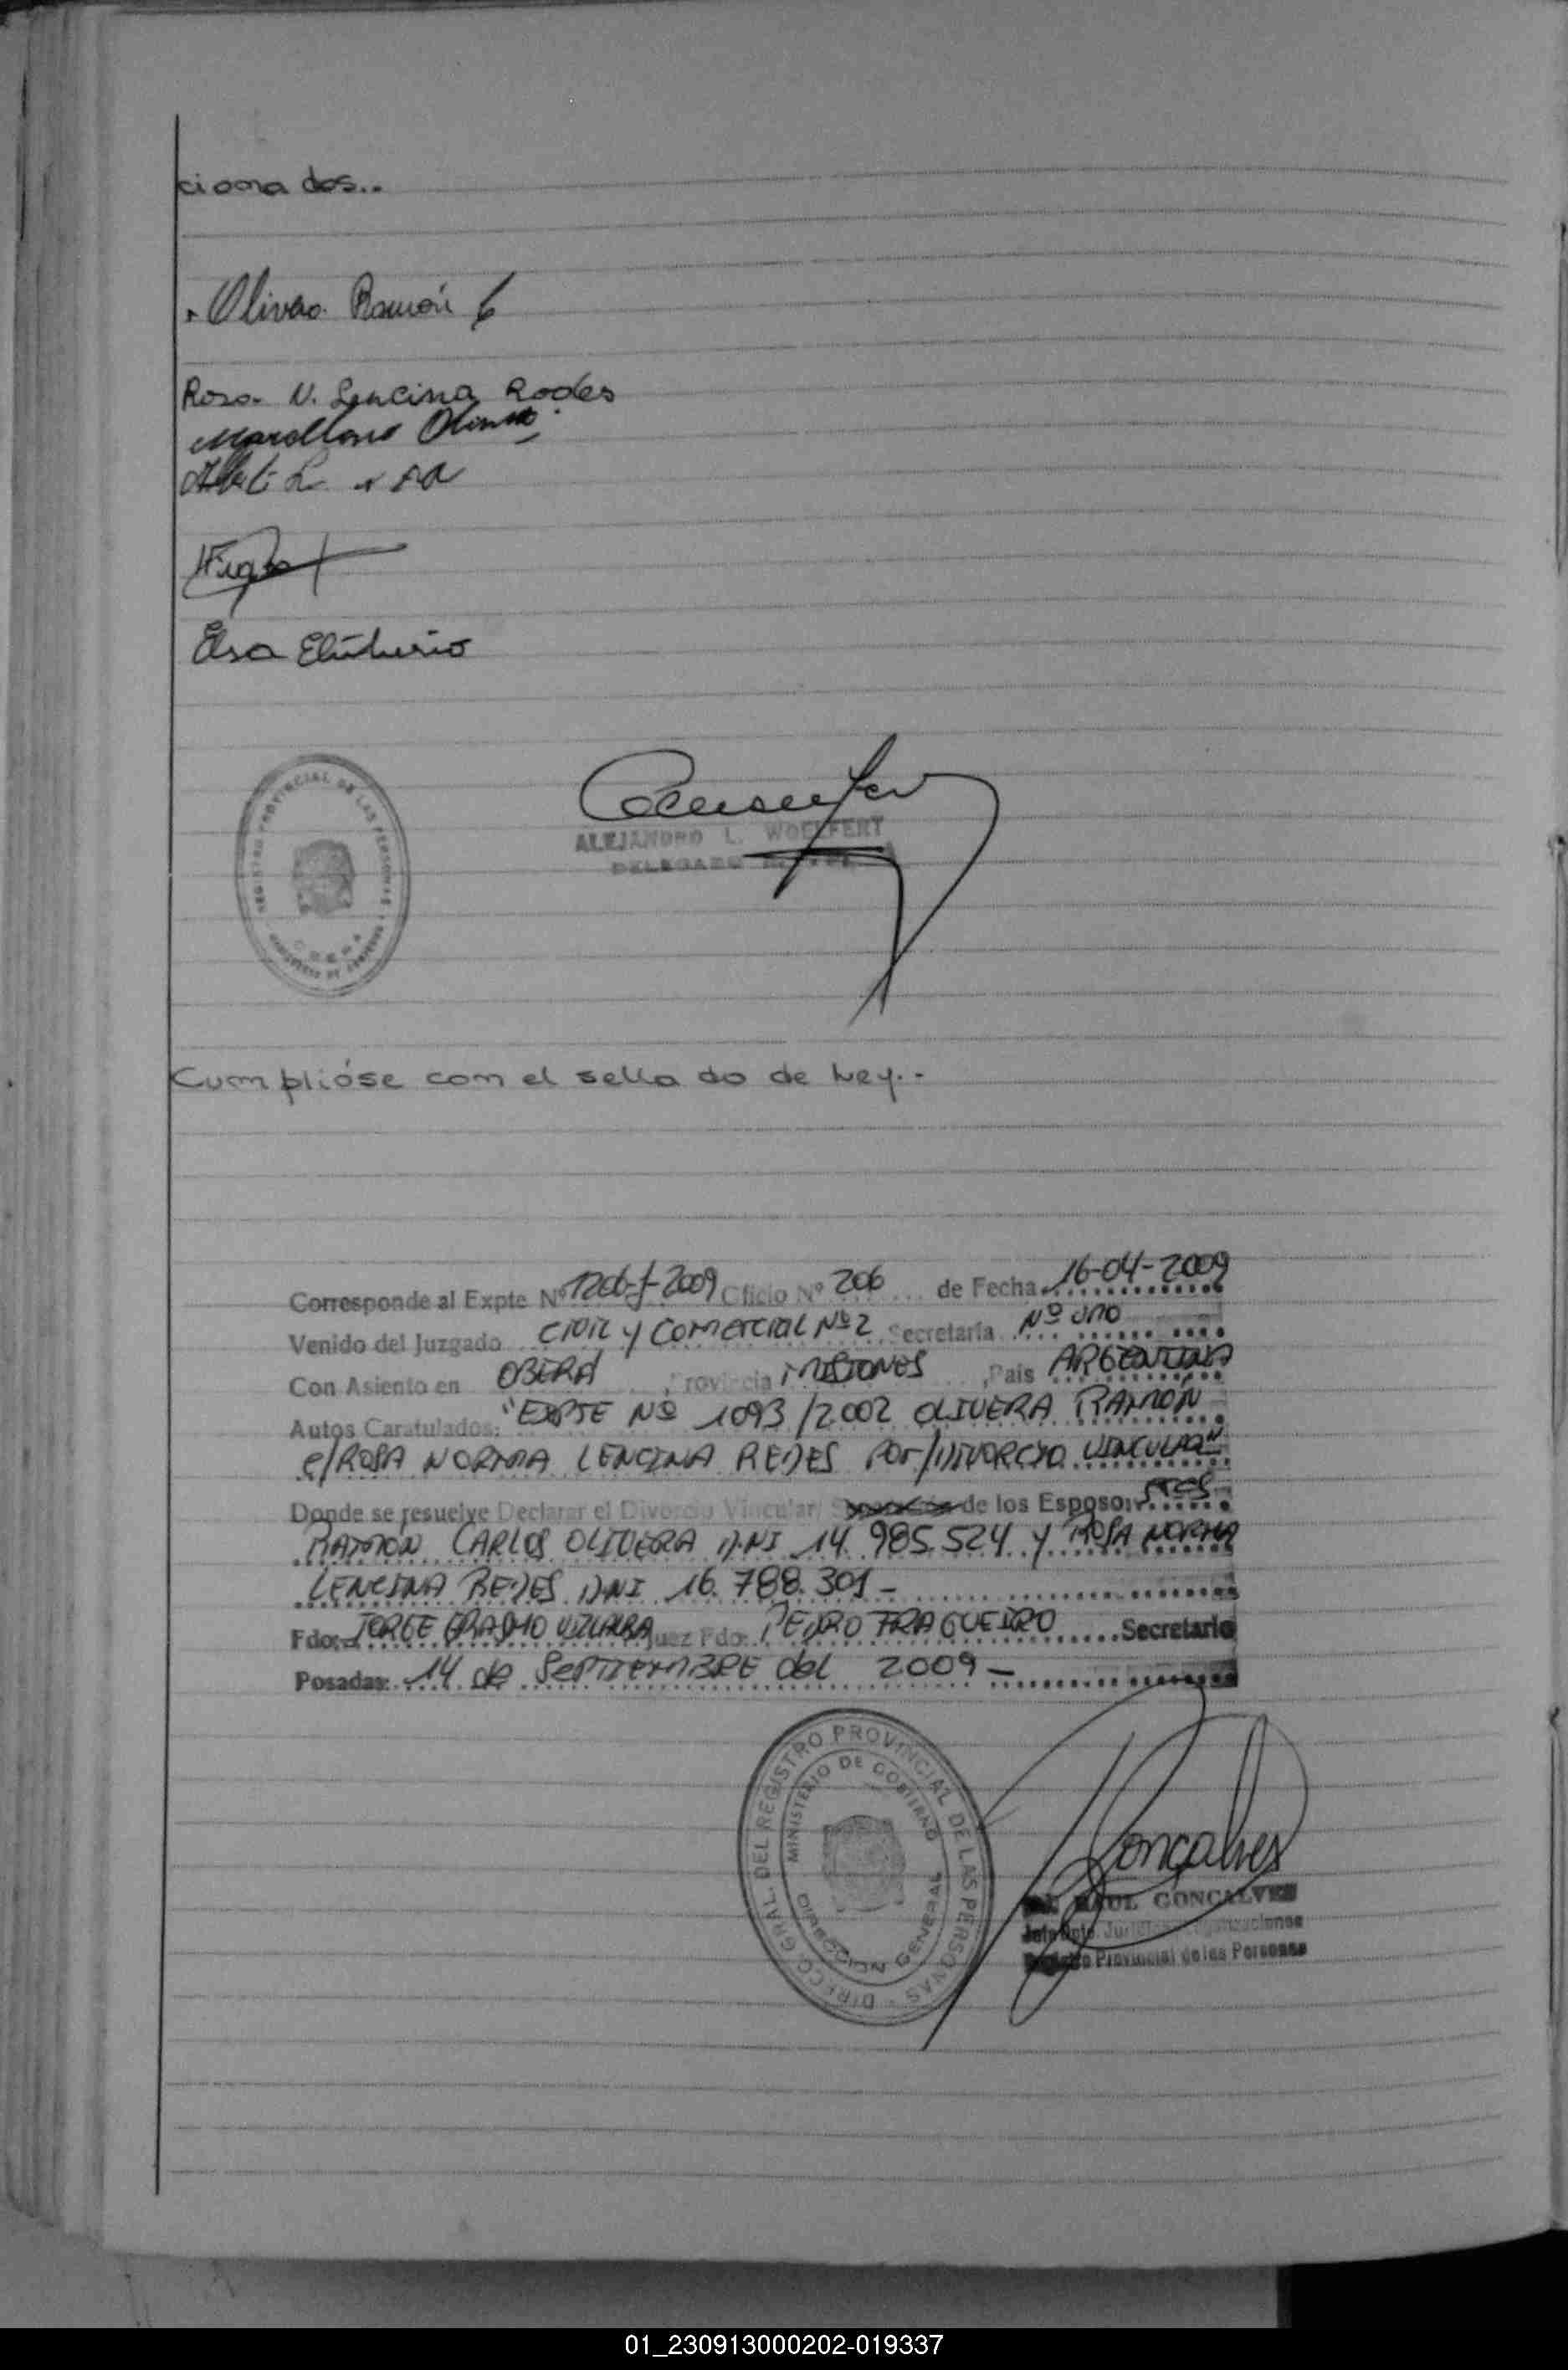 cionados..
Olivera Ramón C
Rosa N. Lencina Rodes
Marcellano
Elsa
REGISTRO PROVINCIAL DE LAS PERSONAS
OBERA
ALEJANDRO L. WOELFERT
DELEGADO
Cumplióse con el sellado de Ley.-
Corresponde al Expte Nº 1206-J-2009 Oficio Nº 206 de Fecha 16-04-2009
Venido del Juzgado CIVIL y COMERCIAL Nº 2 Secretaría Nº UNO
Con Asiento en OBERÁ, Provincia MISIONES, País ARGENTINA
Autos Caratulados: "EXPTE Nº 1093/2002 OLIVERA RAMÓN
c/ROSA NORMA LENCINA REDES por/DIVORCIO VINCULAR"
Donde se resuelve Declarar el Divorcio Vincular/ de los Esposos: Sres
RAMÓN CARLOS OLIVERA DNI 14.985.524 Y ROSA NORMA
LENCINA REDES DNI 16.788.301-
Fdo: JORGE ERASMO VILLALBA Juez Fdo: PEDRO FRAGUEIRO Secretario
Posadas: 14 de SEPTIEMBRE del 2009-
DIRECC. GRAL. DEL REGISTRO PROVINCIAL DE LAS PERSONAS
MINISTERIO DE GOBIERNO
DIRECCION GENERAL
Gonçalves
RAUL GONCALVES
Jefe Dpto.
Registro Provincial de las Personas
01_230913000202-019337